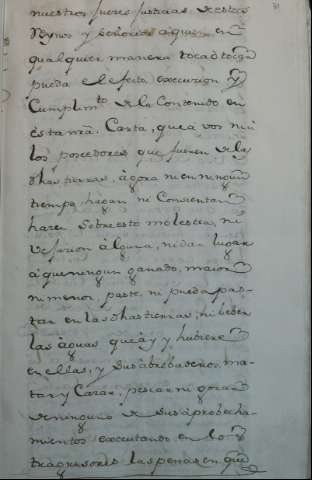 nuestros Jueses Justicias de estos
Reynos y señorios aquien en
qualquier manera toca o tocar
pueda el efecto, execucion y
Cumplimto. de lo Contenido en
esta mi Carta, que a vos ni a
los poseedores que fueren de las
dhas tierras, agora ni en ningun
tiempo hagan ni Consientan
hacer sobre esto molestia, ni
vejacion alguna, ni dar lugar
a que ningun ganado, maior
ni menor paste, ni pueda pas-
tar en las dhas tierras, ni beber
las aguas que ay y hubiere
en ellas, y sus abrebaderos, ma-
tar y Cazar, pescar ni gozar
de ninguno de sus aprobecha-
mientos executando en los
tragresores las penas en que